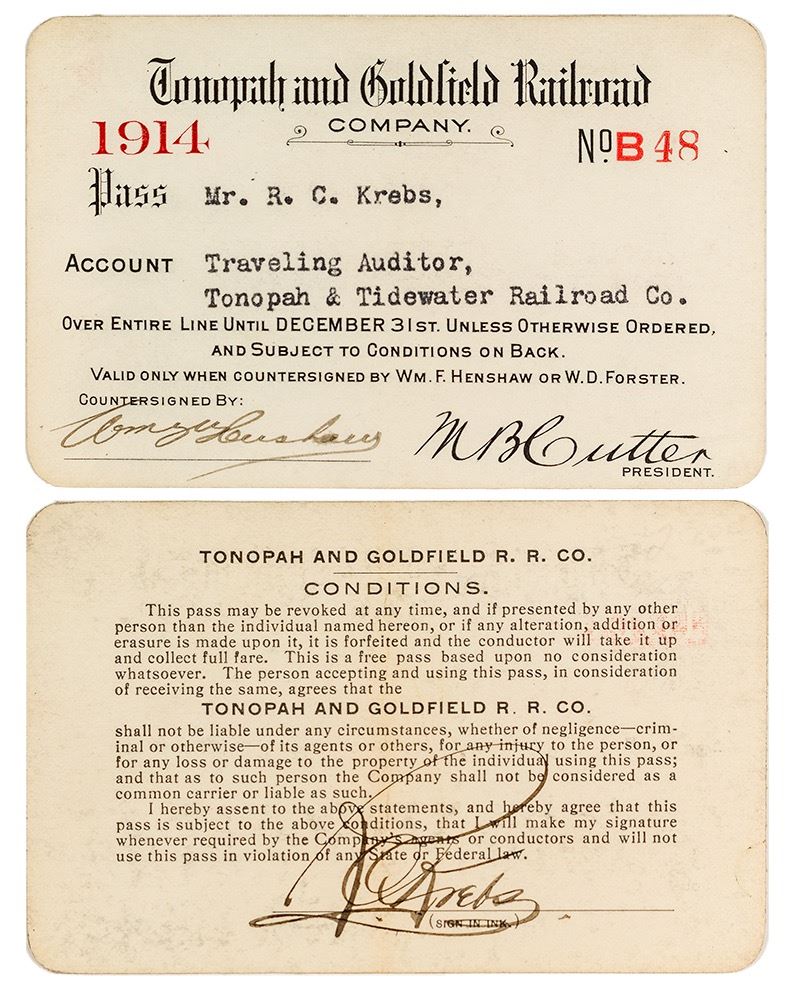 Tonopah and Goldfield Railroad
COMPANY.
1914
No. B 48
Pass Mr. R. C. Krebs,
ACCOUNT Traveling Auditor,
Tonopah & Tidewater Railroad Co.
OVER ENTIRE LINE UNTIL DECEMBER 31ST. UNLESS OTHERWISE ORDERED,
AND SUBJECT TO CONDITIONS ON BACK.
VALID ONLY WHEN COUNTERSIGNED BY WM. F. HENSHAW OR W. D. FORSTER.
COUNTERSIGNED BY:
Wm F Henshaw
M B Cutter
PRESIDENT.
TONOPAH AND GOLDFIELD R. R. CO.
CONDITIONS.
This pass may be revoked at any time, and if presented by any other
person than the individual named hereon, or if any alteration, addition or
erasure is made upon it, it is forfeited and the conductor will take it up
and collect full fare. This is a free pass based upon no consideration
whatsoever. The person accepting and using this pass, in consideration
of receiving the same, agrees that the
TONOPAH AND GOLDFIELD R. R. CO.
shall not be liable under any circumstances, whether of negligence—crim-
inal or otherwise—of its agents or others, for any injury to the person, or
for any loss or damage to the property of the individual using this pass;
and that as to such person the Company shall not be considered as a
common carrier or liable as such.
I hereby assent to the above statements, and hereby agree that this
pass is subject to the above conditions, that I will make my signature
whenever required by the Company's agents or conductors and will not
use this pass in violation of any State or Federal law.
R C Krebs
(SIGN IN INK.)